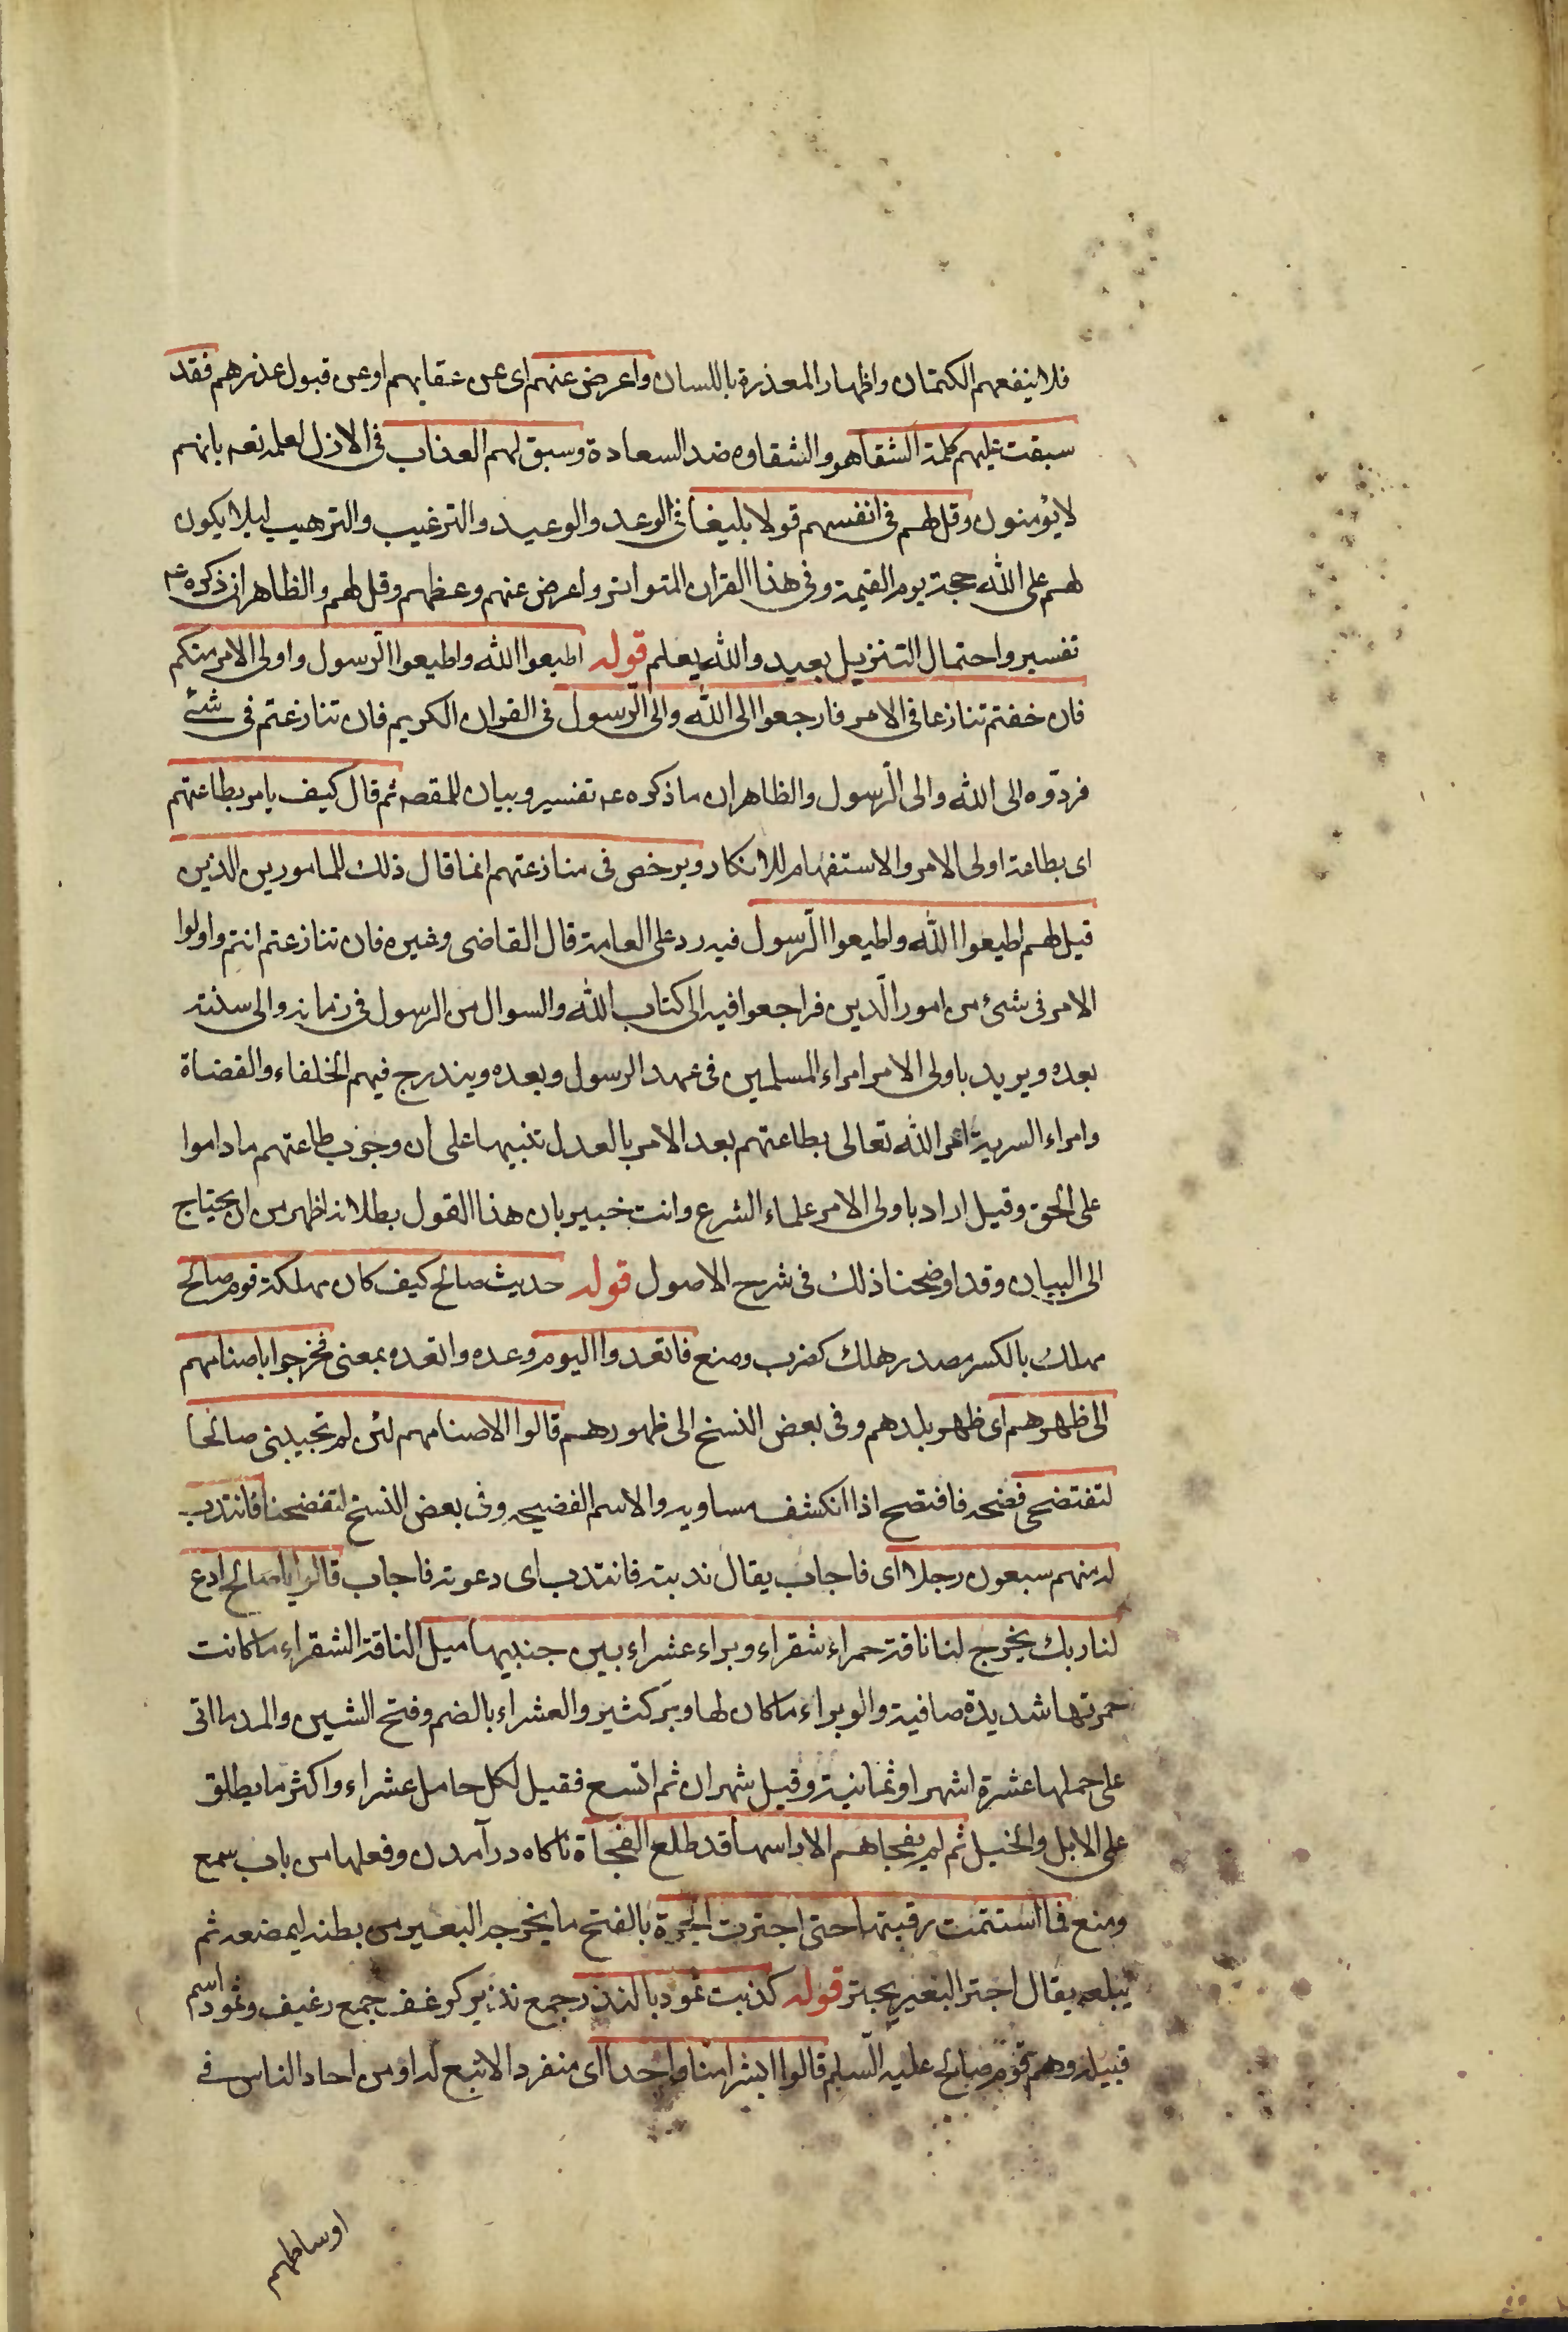 فلا ينفعهم الكتمان واظهار المعذرة باللسان واعرض عنهم اى عن عقابهم او عن قبول عذرهم فقد
سبقت عليهم كلمة الشقا هو والشقاوه ضد السعادة وسبق لهم العذاب فى الازل لعلمه تعه بانهم
لا يؤمنون وقل لهم فى انفسهم قولا بليغا فى الوعد والوعيد والترغيب والترهيب ليلا يكون
لهم على الله حجة يوم القيمة وفى هذا القران المتواتر واعرض عنهم وعظهم وقل لهم والظاهر ان ذكره عه
تفسير واحتمال التنزيل بعيد والله يعلم قوله اطيعوا الله واطيعوا الرسول واولى الامر منكم
فان خفتم تنازعا فى الامر فارجعوا الى الله والى الرسول فى القران الكريم فان تنازعتم فى شئ
فردّوه الى الله والى الرّسول والظاهر ان ما ذكره عه تفسير وبيان للمقصه ثم قال كيف يامر بطاعتهم
اى بطاعة اولى الامر والاستفهام للانكار ويرخص فى منازعتهم انما قال ذلك للمامورين الذين
قيل لهم اطيعوا الله واطيعوا الرّسول فيه رد على العامة قال القاضى وغيره فان تنازعتم انتم واولوا
الامر فى شئ من امور الّدين فراجعوا فيه الى كتاب الله والسوال من الرسول فى زمانه والى سنته
بعده ويريد باولى الامر امراء المسلمين فى عهد الرسول وبعده ويندرج فيهم الخلفاء والقضاة
وامراء السرية امر الله تعالى بطاعتهم بعد الامر بالعدل تنبيها على ان وجوب طاعتهم ما داموا
على الحق وقيل اراد باولى الامر علماء الشرع وانت خبير بان هذا القول بطلانه اظهر من ان يحتاج
الى البيان وقد اوضحنا ذلك فى شرح الاصول قوله حديث صالح كيف كان مهلكة قوم صالح
مهلك بالكسر مصدر هلك كضرب ومنع فاتعدوا اليوم وعده واتعده بمعنى فخرجوا باصنامهم
الى ظهرهم اى ظهر بلدهم وفى بعض النسخ الى ظهورهم قالوا الاصنامهم لئن لم تجيبنى صالحا
لتفتضحى فضحه فافتضح اذا انكشف مساويه والاسم الفضيحه وفى بعض النسخ لتفضحنا فانتدب
له منهم سبعون رجلا اى فاجاب يقال ندبته فانتدب اى دعوته فاجاب قالوا يا صالح ادع
لنا ربك يخرج لنا ناقة حمراء شقراء وبراء عشراء بين جنبيها ميل الناقة الشقراء ما كانت
حمرتها شديدة صافية والوبراء ما كان لها وبر كثير والعشراء بالضم وفتح الشين والمد ما اتى
على حملها عشرة اشهر او ثمانية وقيل شهران ثم اتسع فقيل لكل حامل عشراء واكثر ما يطلق
على الابل والخيل ثم لم يفجاهم الا راسها قد طلع الفجاة ناكاه درآمدن وفعلها من باب سمع
ومنع فما استتمت رقبتها حتى اجترت الجرة بالفتح ما يخرجه البعير من بطنه ليمضغه ثم
يبلعه يقال اجتر البعير يجتر قوله كذبت ثمود بالنذر جمع نذير كرغف جمع رغيف وثمود اسم
قبيله وهم قوم صالح عليه السّلم قالوا ابشرا منا واحدا اى منفردا لا تبع له او من احاد الناس فى
اوساطهم